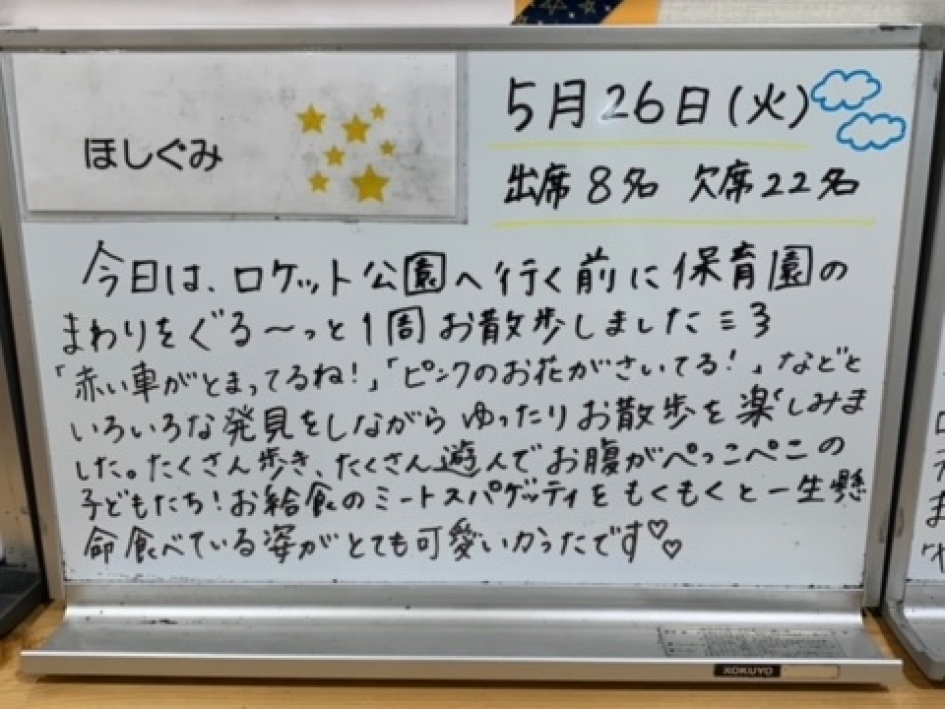 ほしぐみ
5月26日(火)
出席8名 欠席22名
今日は、ロケット公園へ行く前に保育園の
まわりをぐる〜っと1周お散歩しましたミ3
「赤い車がとまってるね!」「ピンクのお花がさいてる!」などと
いろいろな発見をしながらゆったりお散歩を楽しみま
した。たくさん歩き、たくさん遊んでお腹がぺっこぺこの
子どもたち!お給食のミートスパゲッティをもくもくと一生懸
命食べている姿がとても可愛いかったです♡♡
KOKUYO